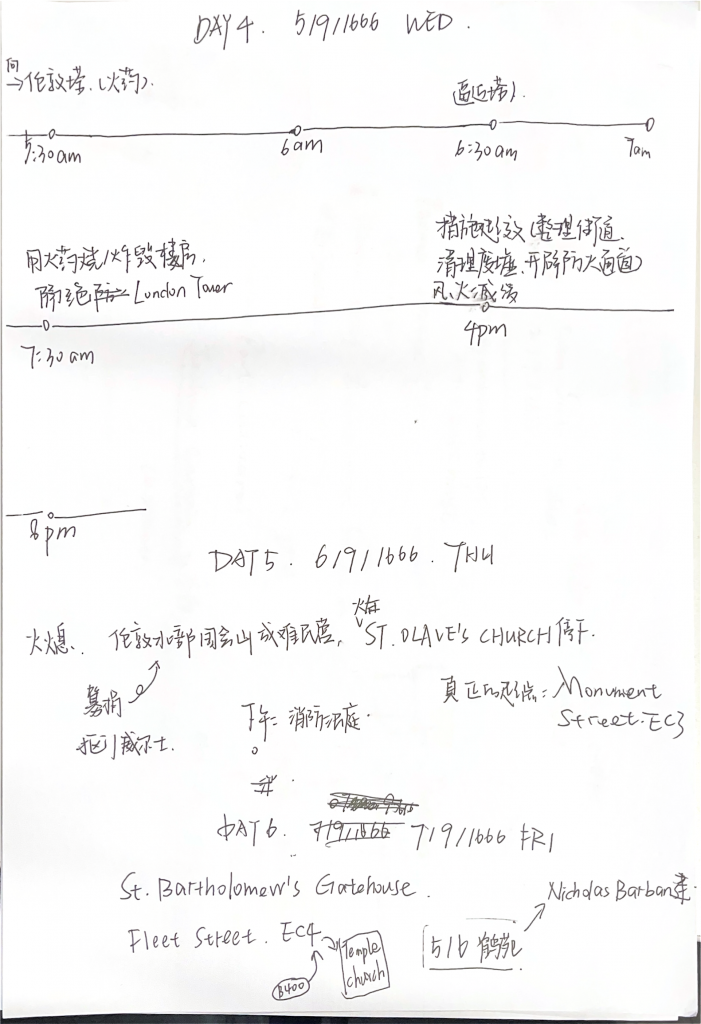 DAY4. 5/9/1666 WED.
向
→伦敦塔.(火药).
逼近塔).
5:30am 6am 6:30am 7am
用火药烧/炸毁楼房,
隔绝 London Tower
措施见效(整理街道.
清理废墟.开辟防火通道)
风、火减缓
7:30am 4pm
8pm
DAY5. 6/9/1666. THU
火熄、伦敦北部 山 成难民营,
在
火 ST. OLAVE's CHURCH 停下.
募捐
威尔士.
真正的起点: Monument
Street.EC3
下午: 消防法庭.
DAY6. 7/9/1666 7/9/1666 FRI
St. Bartholomew's Gatehouse.
Fleet Street. EC4
Temple
church
B400
5/6
Nicholas Barban建.